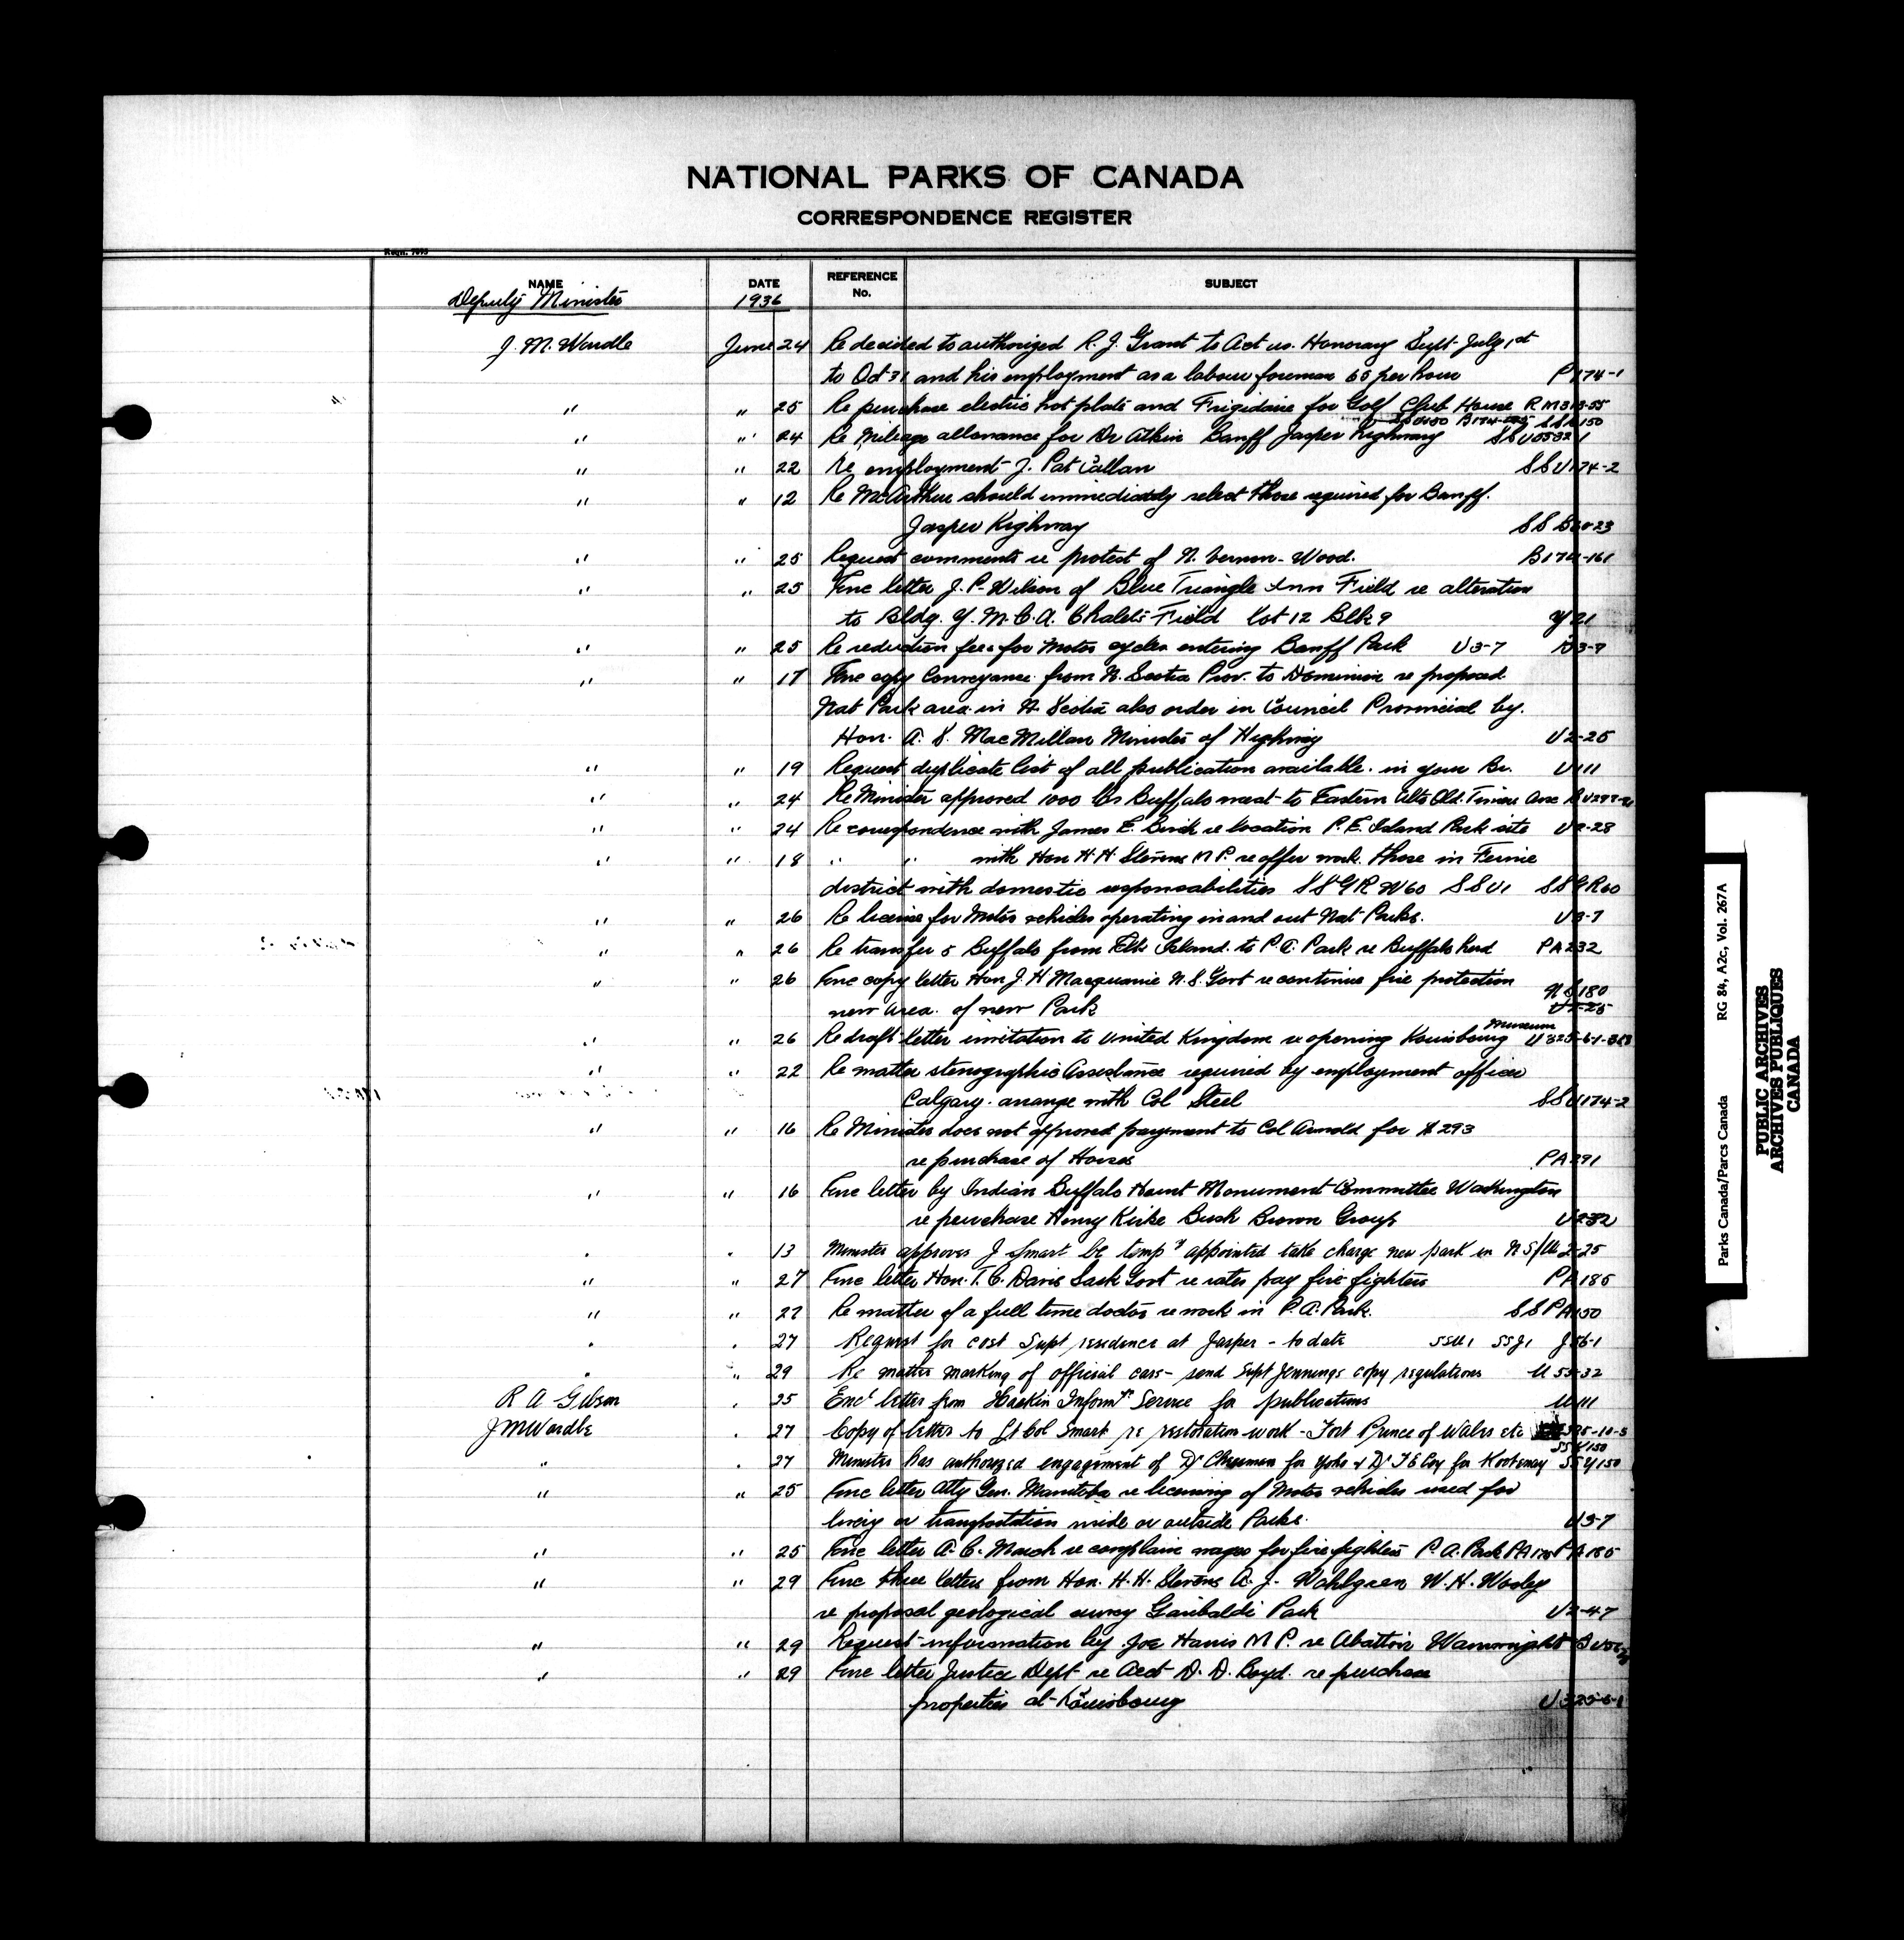 NATIONAL PARKS OF CANADA
CORRESPONDENCE REGISTER
Reqn. 7095
NAME DATE REFERENCE No. SUBJECT
Deputy Minister 1936
J. M. Wardle June 24 Re decided to authorized R. J. Grant to Act as. Honorary Supt. July 1st
to Oct 31 and his employment as a labour foreman 65 per hour P174-1
" " 25 Re purchase electric hot plate and Frigidaire for Golf Club House RM 313-55
" " 24 Re Mileage allowance for Dr Atkin Banff Jasper Highway
" " 22 Re employment J. Pat Callan SSU174-2
" " 12 Re McArthur should immediately select those required for Banff.
Jasper Highway SSB60-23
" " 25 Request comments re protest of N. Vernon-Wood. B174-161
" " 25 Enc letter J. P. Wilson of Blue Triangle Inn Field re alteration
to Bldg. Y.M.C.A. Chalet Field Lot 12 Blk 9 Y21
" " 25 Re reduction fees for Motor cycles entering Banff Park U3-7 B3-7
" " 17 Enc copy Conveyance from N. Scotia Prov. to Dominion re proposed
Nat Park area in N. Scotia also order in Council Provincial by.
Hon. A. S. MacMillan Minister of Highway U2-25
" " 19 Request duplicate list of all publication available. in your Br. U111
" " 24 Re Minister approved 1000 lbs Buffalo meat to Eastern Alta Old. Timers Assc
" " 24 Re correspondence with James E. Birch re location P. E. Island Park site U2-28
" " 18 " " with Hon H. H. Stevens M P. re offer work. those in Fernie
district with domestic responsabilities SSGR W60 SSU1 SSGR60
" " 26 Re license for Motor vehicles operating in and out Nat Parks. U3-7
" " 26 Re transfer 5 Buffalo from Elk Island. to P. A. Park re Buffalo herd PA232
" " 26 Enc copy letter Hon J. H Macquarrie N.S. Govt re continue fire protection
new area. of new Park NS180 U2-25
" " 26 Re draft letter invitation to United Kingdom re opening Louisbourg Museum U325-6-1
" " 22 Re matter stenographic Assistance required by employment officer
Calgary. arrange with Col Steel SSU174-2
" " 16 Re Minister does not approved payment to Col Arnold for $293
re purchase of Horses PA291
" " 16 Enc letter by Indian Buffalo Hunt Monument Committee Washington
re purchase Henry Kirke Bush Brown Group U232
" " 13 Minister approves J Smart be tempy appointed take charge new park in N S/U2-25
" " 27 Enc letter Hon. T. C. Davis Sask Govt re rates pay fire fighters PA185
" " 27 Re matter of a full time doctor re work in P. A. Park. SSPA150
" " 27 Request for cost Supt residence at Jasper - to date SSU1 SSJ1 J56-1
" " 29 Re matter marking of official cars - send Supt Jennings copy regulations U55-32
R A Gibson " 25 Encl letter from Haskin Informtn Service for publications U111
JMWardle " 27 Copy of letter to Lt Col Smart re restoration work - Fort Prince of Wales etc
" " 27 Minister has authorized engagement of Dr Cheeseman for Yoho & Dr F E Coy for Kootenay SSK150 SSY150
" " 25 Enc letter Atty Gen. Manitoba re licensing of Motor vehicles used for
livery or transportation inside or outside Parks. U3-7
" " 25 Enc letter A. C. March re complains wages for fire fighters P. A. Park PA178 PA185
" " 29 Enc three letters from Hon. H. H. Stevens A. J. Wahlgren W. H. Wooley
re proposal geological survey Garibaldi Park U2-47
" " 29 Request information by Joe Harris M P. re Abattoir Wainwright
" " 29 Enc letter Justice Dept re Acct D. D. Boyd. re purchase
properties at Louisbourg U325-6-1
Parks Canada/Parcs Canada RG 84, A2c, Vol. 267A
PUBLIC ARCHIVES
ARCHIVES PUBLIQUES
CANADA